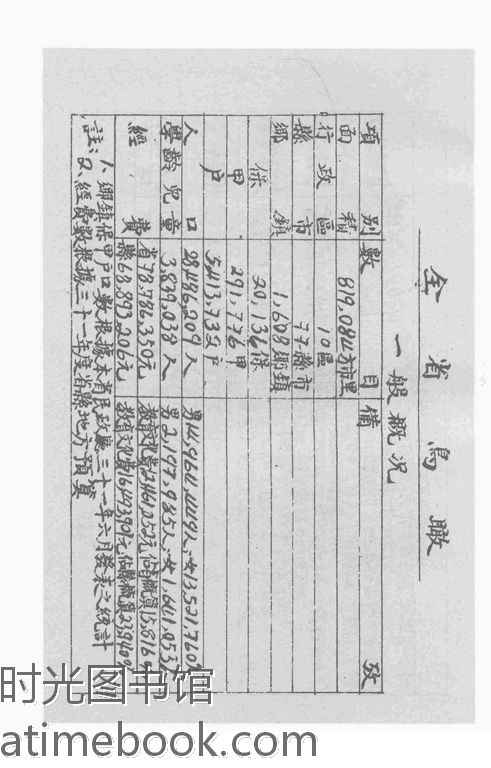 全省鳥瞰
一般概況
項別 數目 備攷
面積 819,084方市里
行政區 10區
縣市 77縣市
鄉鎮 1,608鄉鎮
保 20,136保
甲 291,776甲
戶 5,413,732戶
人口 28,486,209人 男14,964,449人,女13,521,760人
學齡兒童 3,839,038人 男2,197,985人,女1,641,053人
經費 省78,786,350元
縣68,893,206元
註:1、鄉鎮保甲戶口數根據本省民政廳三十一年六月發表之統計
2、經費數根據三十一年度省縣地方預算
时光图书馆
atimebook.com